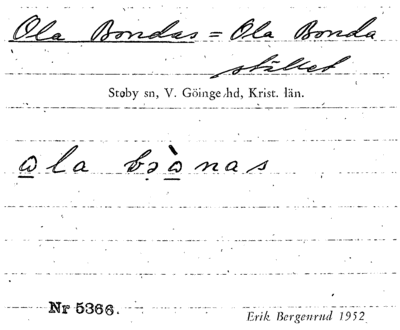 Ola Bondas = Ola Bonda
stället
Stoby sn, V. Göinge hd, Krist. län.
o̲la bɔò̲nas
Nr 5366.
Erik Bergenrud 1952